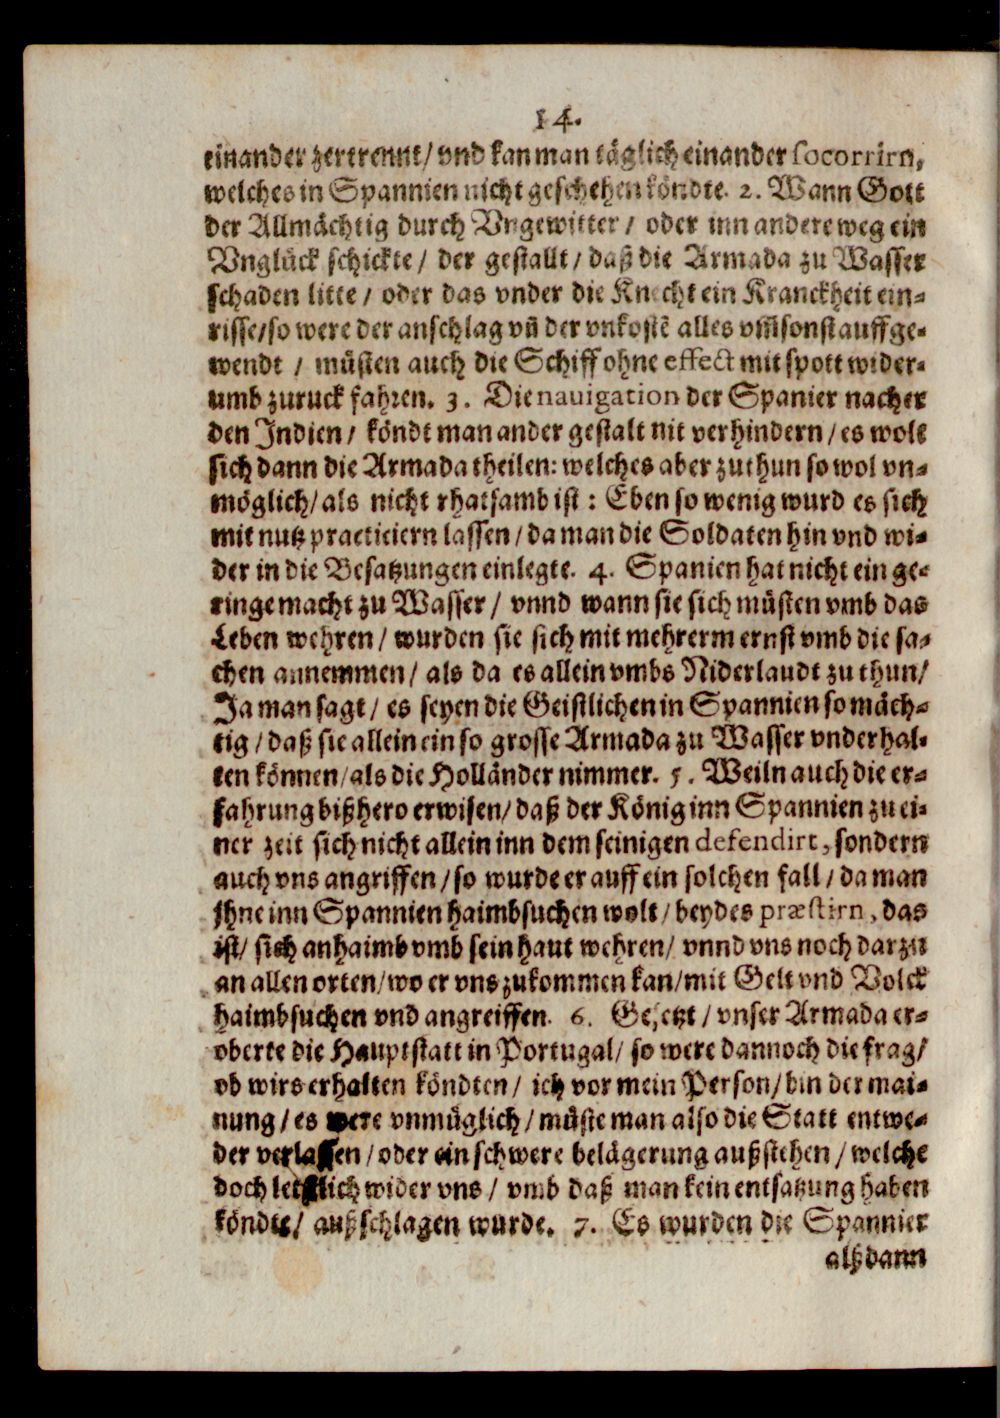 14.
einander zertrennt/ vnd kan man täglich einander socorrirn,
welches in Spannien nicht geschehen köndte. 2. Wann Gott
der Allmächtig durch Vngewitter / oder inn andere weg ein
Vnglück schickte / der gestallt / daß die Armada zu Wasser
schaden litte / oder das vnder die Knecht ein Kranckheit ein-
risse/so were der anschlag vñ der vnkostẽ alles vm̃sonst auffge-
wendt / müsten auch die Schiff ohne effect mit spott wider-
umb zuruck fahren. 3. Die nauigation der Spanier nacher
den Indien / köndt man ander gestalt nit verhindern / es wolt
sich dann die Armada theilen: welches aber zuthun so wol vn-
möglich/ als nicht rhatsamb ist : Eben so wenig wurd es sich
mit nutz practiciern lassen / da man die Soldaten hin vnd wi-
der in die Besatzungen einlegte. 4. Spanien hat nicht ein ge-
ringe macht zu Wasser / vnnd wann sie sich müsten vmb das
Leben wehren / wurden sie sich mit mehrerm ernst vmb die sa-
chen annemmen / als da es allein vmbs Niderlandt zu thun/
Ja man sagt / es seyen die Geistlichen in Spannien so mäch-
tig / daß sie allein ein so grosse Armada zu Wasser vnderhal-
ten können/als die Holländer nimmer. 5. Weiln auch die er-
fahrung bißhero erwisen/ daß der König inn Spannien zu ei-
ner zeit sich nicht allein inn dem seinigen defendirt, sondern
auch vns angriffen / so wurde er auff ein solchen fall / da man
jhne inn Spannien haimbsuchen wolt / beydes præstirn, das
ist/ sich anhaimb vmb sein haut wehren/ vnnd vns noch darzu
an allen orten/wo er vns zukommen kan/mit Gelt vnd Volck
haimbsuchen vnd angreiffen. 6. Gesetzt / vnser Armada er-
oberte die Hauptstatt in Portugal/ so were dannoch die frag/
ob wirs erhalten köndten / ich vor mein Person/ bin der mai-
nung / es were vnmüglich / müste man also die Statt entwe-
der verlassen / oder ein schwere belägerung außstehen / welche
doch letstlich wider vns / vmb daß man kein entsatzung haben
köndte/ außschlagen wurde. 7. Es wurden die Spannier
alßdann